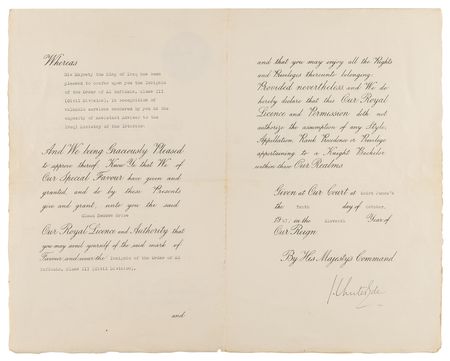 Whereas
His Majesty The King of Iraq has been
pleased to confer upon you the Insignia
of the Order of Al Rafidain, Class III
(Civil Division), in recognition of
valuable services rendered by you in the
capacity of Assistant Adviser to the
Iraqi Ministry of the Interior.
And We being Graciously Pleased
to approve thereof Know Ye that We of
Our Special Favour have given and
granted, and do by these Presents
give and grant, unto you the said
Our Royal Licence and Authority that
you may avail yourself of the said mark of
Favour and wear the Insignia of the Order of Al
Rafidain, Class III (Civil Division),
and
and that you may enjoy all the Rights
and Privileges thereunto belonging.
Provided nevertheless and We do
hereby declare that this Our Royal
Licence and Permission doth not
authorize the assumption of any Style,
Appellation, Rank Precedence or Privilege
appertaining to a Knight Bachelor
within these Our Realms.
Given at Our Court at Saint James's
the Tenth day of October,
19 in the Eleventh Year of
Our Reign
By His Majesty's Command